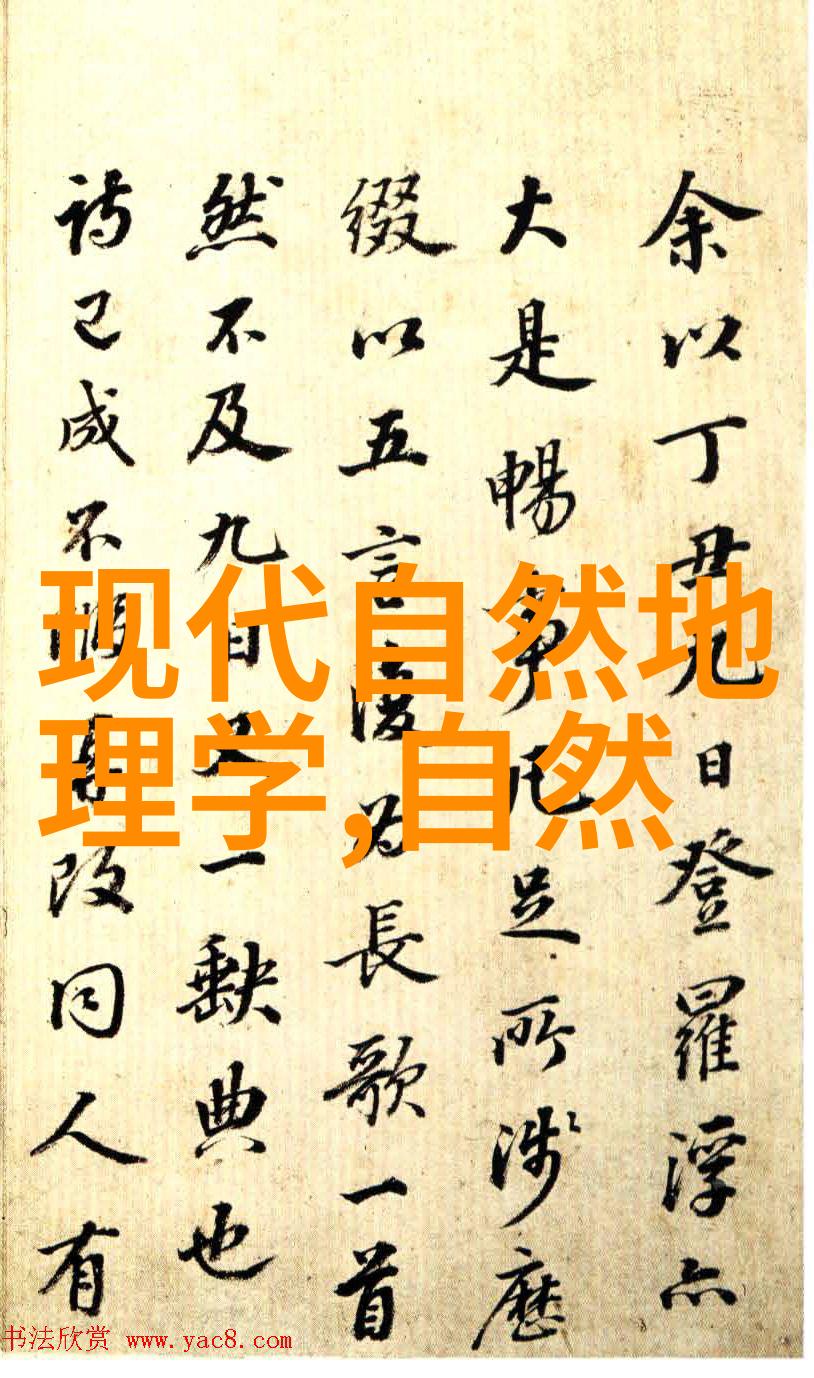 余以丁丑九日登羅浮亦
大是暢事凡足所涉歷
綴以五言復为長歌一首
然不及九日又一缺典也
詩已成不暇改同人有
现代自然地
理学,自然
书法欣赏 www.yac8.com